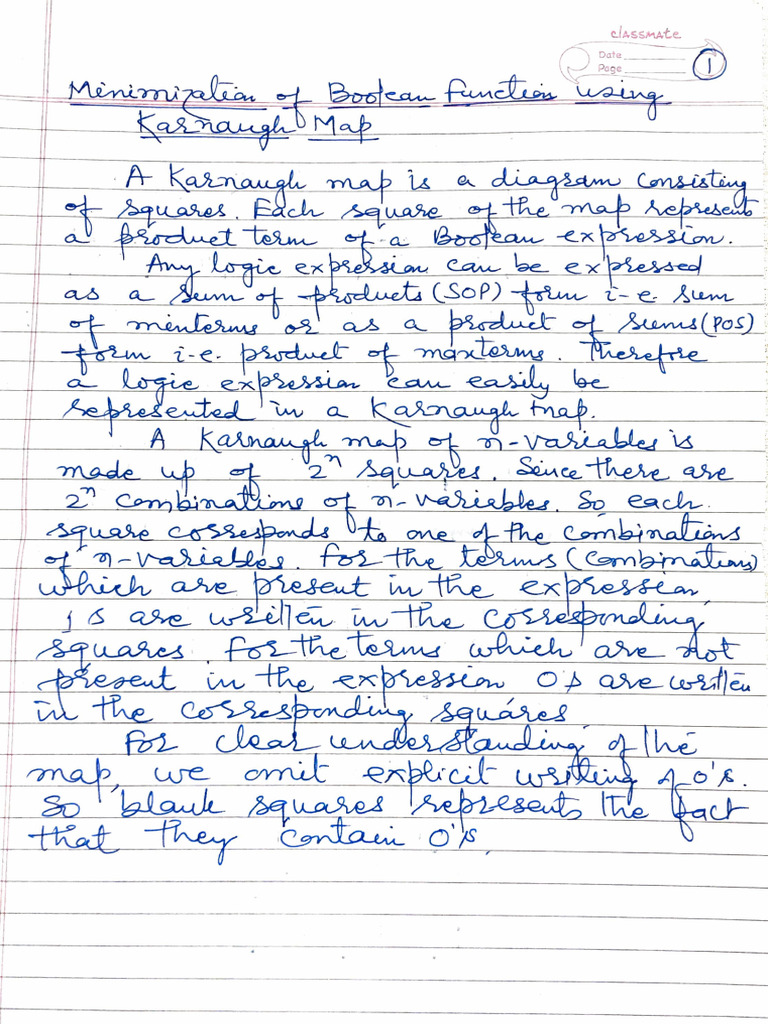 classmate
Date
Page
1
Minimization of Boolean function using
Karnaugh Map
A Karnaugh map is a diagram consisting
of squares. Each square of the map represents
a product term of a Boolean expression.
Any logic expression can be expressed
as a sum of products (SOP) form i-e. sum
of minterms or as a product of sums (POS)
form i-e. product of maxterms. Therefore
a logic expression can easily be
represented in a Karnaugh map.
A Karnaugh map of n-variables is
made up of 2ⁿ squares. Since there are
2ⁿ combinations of n-variables. So each
square corresponds to one of the combinations
of n-variables. For the terms (combinations)
which are present in the expression,
1's are written in the corresponding
squares. For the terms which are not
present in the expression 0's are written
in the corresponding squares
For clear understanding of the
map, we omit explicit writing of 0's.
So blank squares represents the fact
that they contain 0's.